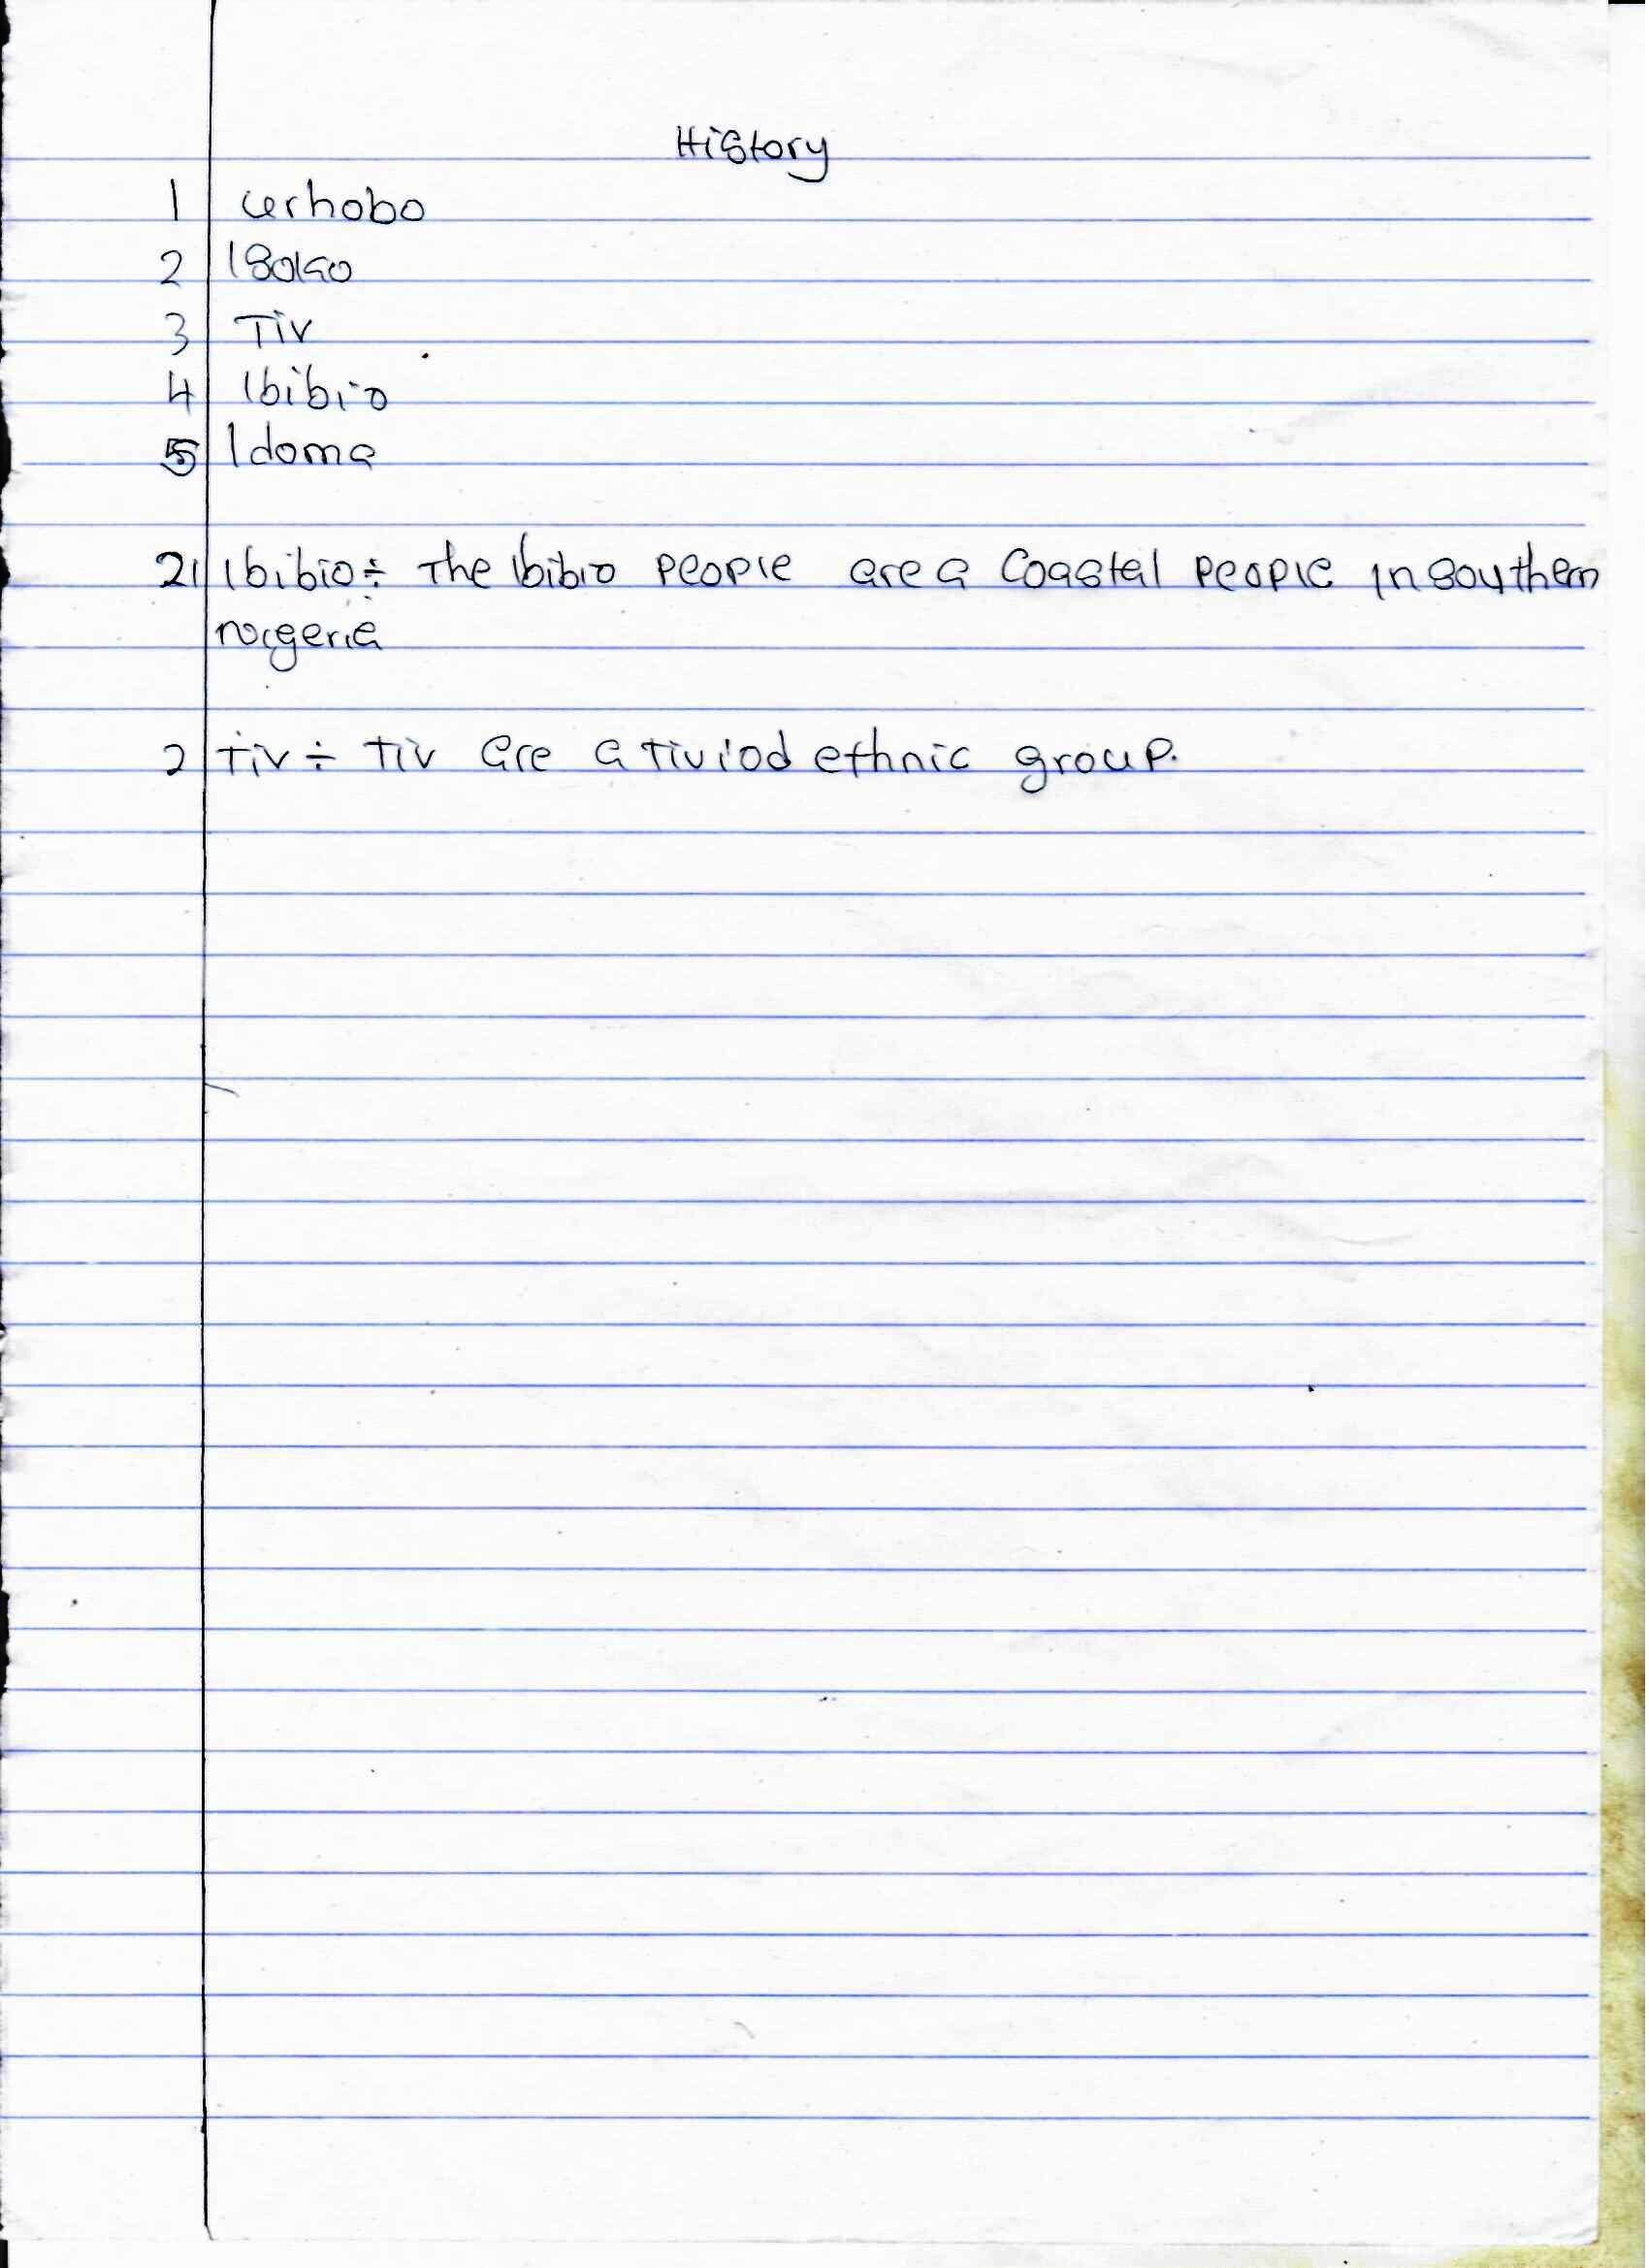 History
1 urhobo
2 Isoko
3 Tiv
4 Ibibio
5 Idoma
21 Ibibio÷ The Ibibio people are a Coastal people in southern
nigeria
2 Tiv÷ Tiv are a Tiviod ethnic group.